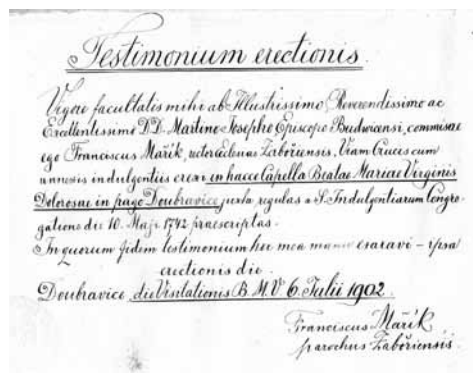 Testimonium erectionis.
Vigore facultatis mihi ab Illustrissimo, Reverendissimo ac
Excellentissimo D.D. Martino Josepho Episcopo Budvicensi, commissae
ego Franciscus Mařík, rector ecclesiae Zabořiensis, Viam Crucis cum
annexis indulgentiis erexi in hacce Capella Beatae Mariae Virginis
Dolorosae in pago Doubravice juxta regulas a S. Indulgentiarum Congre-
gatione die 10. Maji 1742 praescriptas.
In quorum fidem testimonium hoc mea manu exaravi – ipsa
erectionis die.
Doubravice, die Visitationis B. M. V. 6. Julii 1902.
Franciscus Mařík,
parochus Zabořiensis.